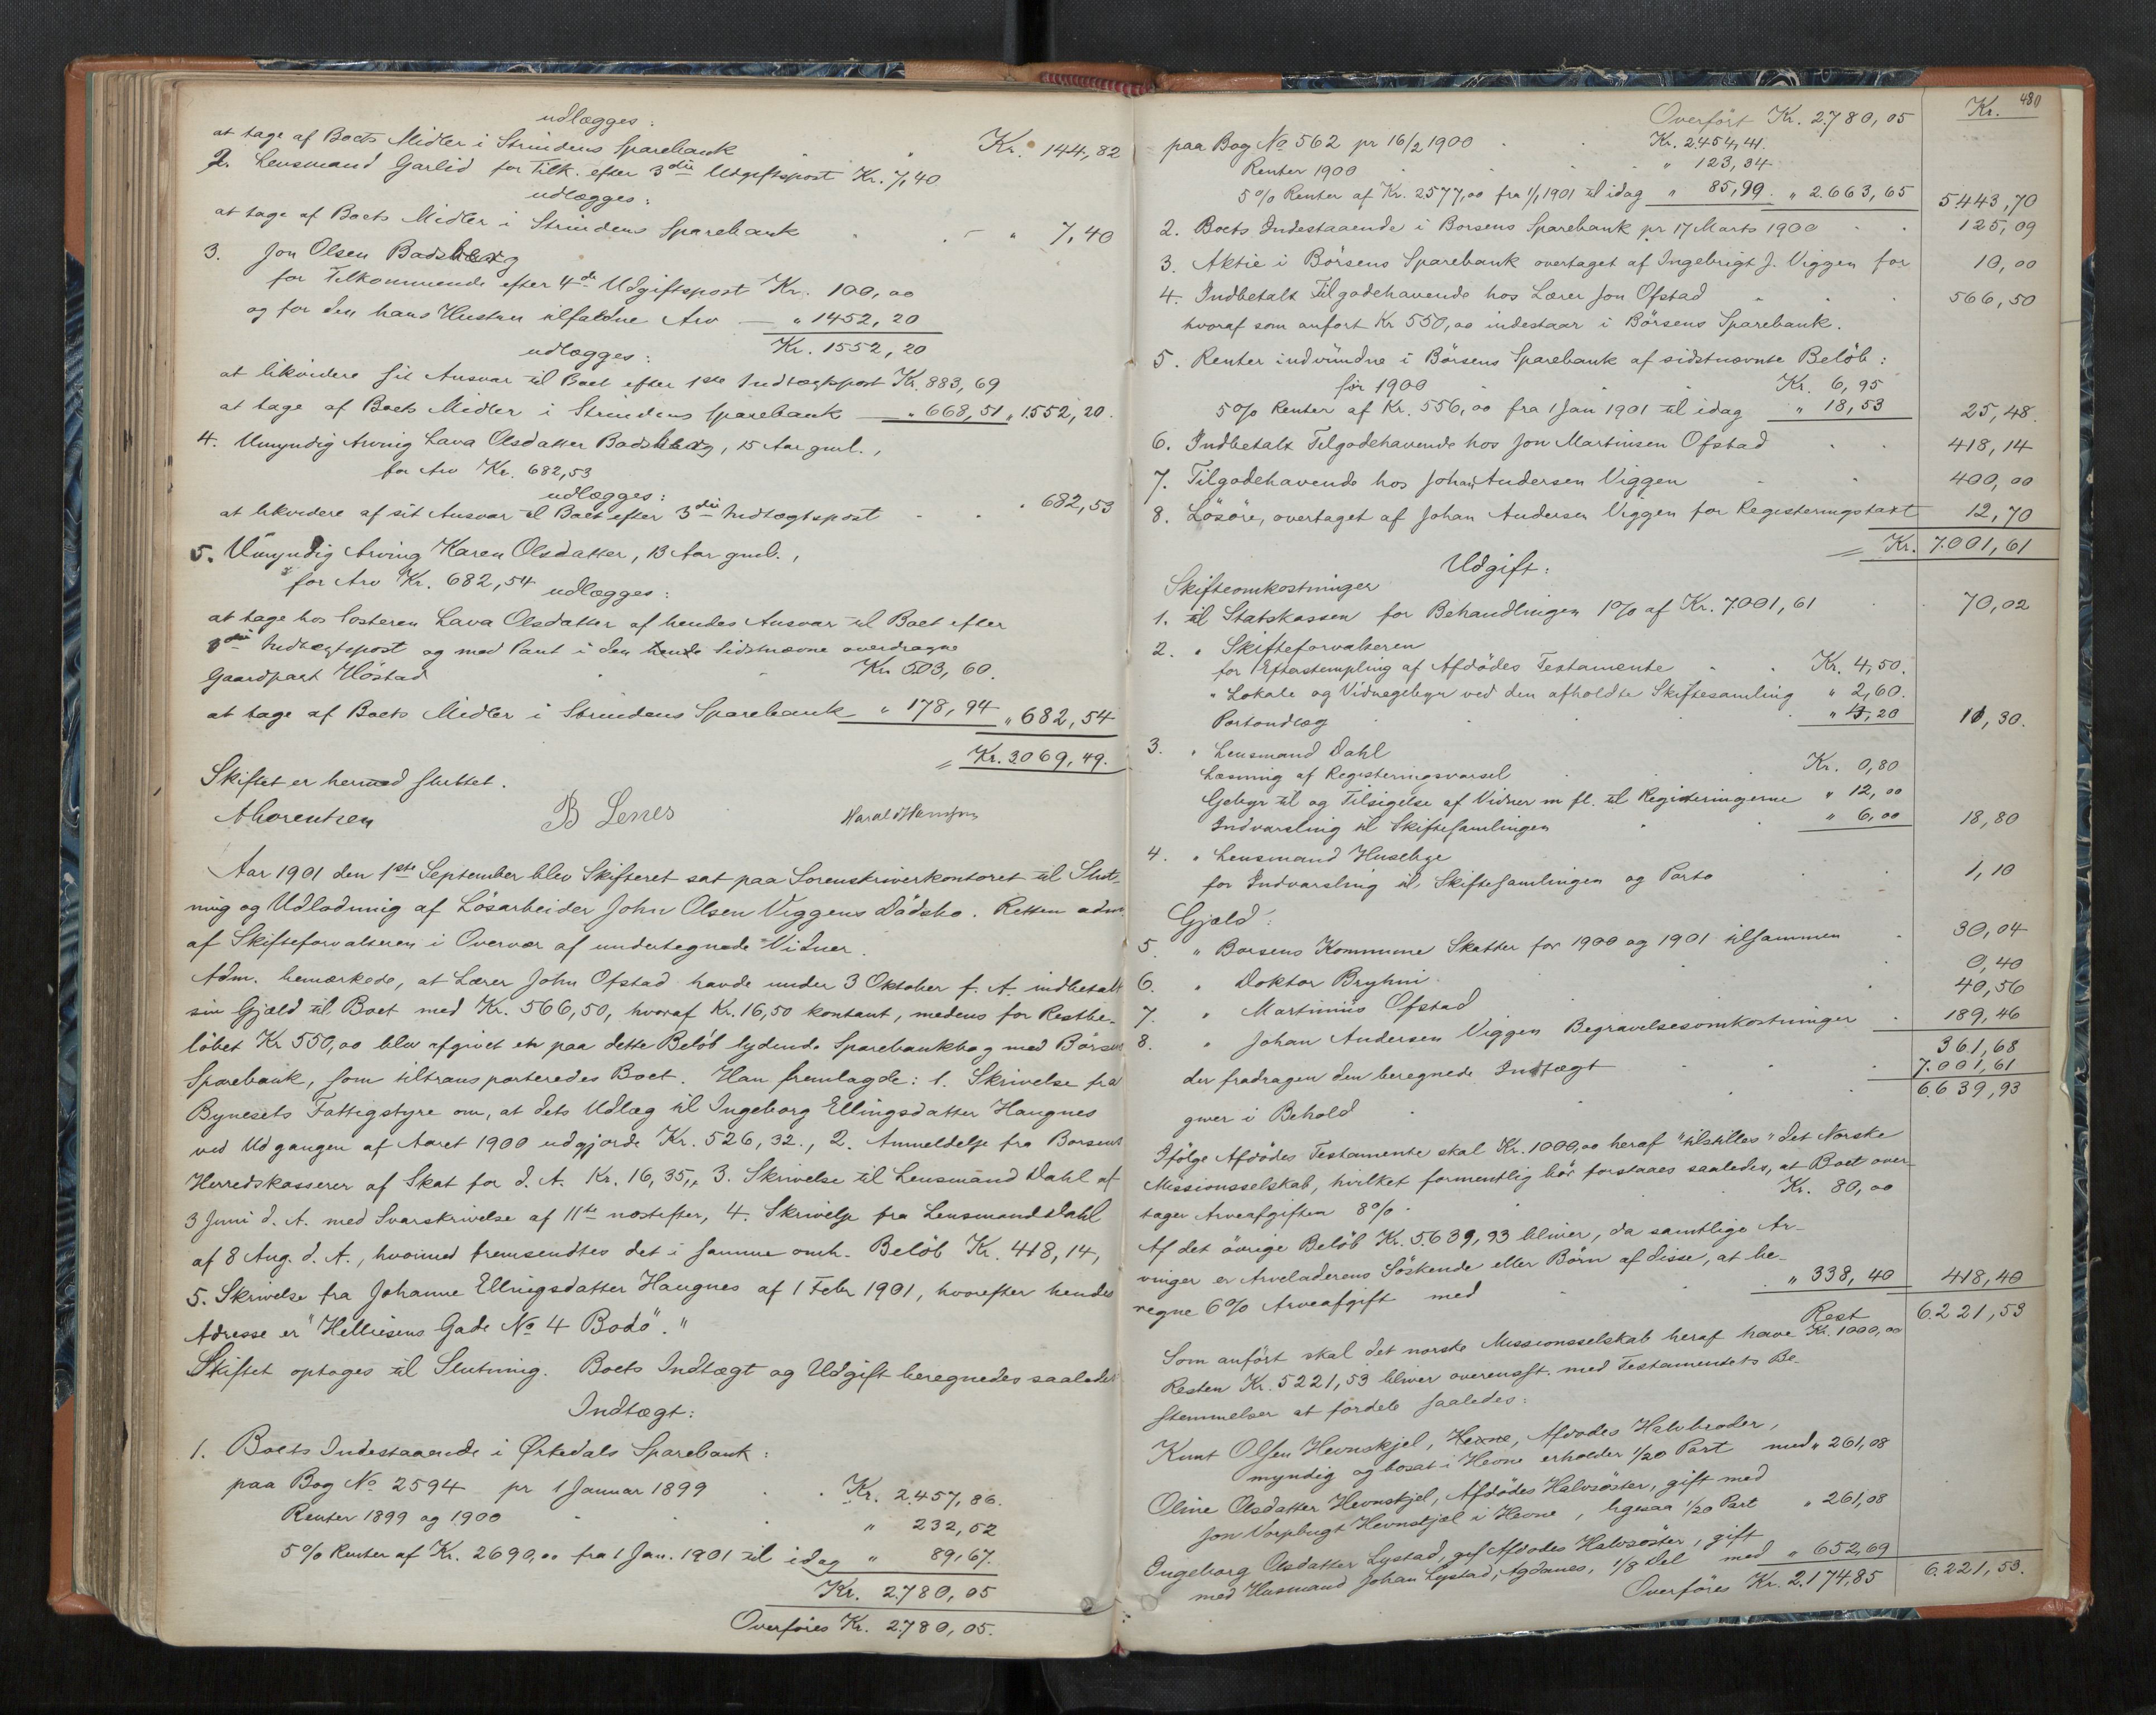 udlægges:
at tage af Boets Midler i Strindens Sparebank Kr. 144,82
2. Lensmand Garlid for Tilk. efter 3die Udgiftspost Kr. 7,40
udlægges:
at tage af Boets Midler i Strindens Sparebank " 7,40
3. Jon Olsen Badsberg
for Tilkommende efter 4de Udgiftspost Kr. 100,00
og for den hans Hustru tilfaldne Arv — " 1452,20
Kr. 1552,20
udlægges:
at likvidere sit Ansvar til Boet efter 1ste Indtægtspost Kr. 883,69
at tage af Boets Midler i Strindens Sparebank — " 668,51 " 1552,20.
4. Umyndig Arving Lava Olsdatter Badsberg, 15 Aar gml.,
for Arv Kr. 682,53
udlægges:
at likvidere af sit Ansvar til Boet efter 3die Indtægtspost " 682,53
5. Umyndig Arving Karen Olsdatter, 13 Aar gml.,
for Arv Kr. 682,54
udlægges:
at tage hos Søsteren Lava Olsdatter af hendes Ansvar til Boet efter
3die Indtægtspost og med Pant i den hende sidstnævne overdragne
Gaardpart Höstad Kr. 503,60.
at tage af Boets Midler i Strindens Sparebank " 178,94 " 682,54
= Kr. 3069,49.
Skiftet er hermed sluttet.
A Lorentzen B Lenes Harald Hansen
Aar 1901 den 1ste September blev Skifteret sat paa Sorenskriverkontoret til Slut-
ning og Udlodning af Lösarbeider John Olsen Viggens Dödsbo. Retten adm.
af Skifteforvalteren i Overvær af undertegnede Vidner.
Adm. bemærkede, at Lærer John Ofstad havde under 3 Oktober f. A. indbetalt
sin Gjæld til Boet med Kr. 566,50, hvoraf Kr. 16,50 kontant, medens for Restbe-
löbet Kr 550,00 blev afgivet en paa dette Belöb lydende Sparebankbog med Börsens
Sparebank, som tiltransporteredes Boet. Han fremlagde: 1. Skrivelse fra
Bynesets Fattigstyre om, at dets Udlæg til Ingeborg Ellingsdatter Haugnes
ved Udgangen af Aaret 1900 udgjorde Kr. 526,32., 2. Anmeldelse fra Borsens
Herredskasserer af Skat for d. A. Kr. 16,35,, 3. Skrivelse til Lensmand Dahl af
3 Juni d. A. med Svarskrivelse af 11te næstefter, 4. Skrivelse fra Lensmand Dahl
af 8 Aug. d. A., hvormed fremsendtes det i samme omh. Belöb Kr. 418,14,
5. Skrivelse fra Johanne Ellingsdatter Haugnes af 1 Febr 1901, hvorefter hendes
Adresse er "Hellesens Gade No 4 Bodö".
Skiftet optoges til Slutning. Boets Indtægt og Udgift beregnedes saaledes
Indtægt:
1. Boets Indestaaende i Ørkedals Sparebank:
paa Bog No 2594 pr 1 Januar 1899 Kr. 2457,86.
Renter 1899 og 1900 " 232,52
5% Renter af Kr. 2690,00 fra 1 Jan. 1901 til idag " 89,67.
Kr. 2780,05
Overföres Kr. 2780,05.
480
Overfört Kr. 2780,05 Kr.
paa Bog No 562 pr 16/2 1900 Kr. 2454,41.
Renter 1900 " 123,34
5% Renter af Kr. 2577,00 fra 1/1 1901 til idag " 85,90. " 2.663,65 5443,70
2. Boets Indestaaende i Borsens Sparebank pr 17 Marts 1900 125,09
3. Aktie i Börsens Sparebank overtaget af Ingebrigt J. Viggen for 10,00
4. Indbetalt Tilgodehavende hos Lærer Jon Ofstad 566,50
hvoraf som anfört Kr 550,00 indestaar i Börsens Sparebank.
5. Renter indvundne i Börsens Sparebank af sidstnævnte Belöb:
for 1900 Kr. 6,95
5% Renter af Kr. 556,00 fra 1 Jan 1901 til idag " 18,53 25,48.
6. Indbetalt Tilgodehavende hos Jon Martinsen Ofstad 418,14
7. Tilgodehavende hos Johan Andersen Viggen 400,00
8. Lösöre, overtaget af Johan Andersen Viggen for Registeringstakt 12,70
= Kr. 7.001,61
Udgift:
Skifteomkostninger
1. til Statskassen for Behandlingen 1% af Kr. 7.001,61 70,02
2. " Skifteforvalteren
for Efterstempling af Afdödes Testamente Kr. 4,50.
" Lokale og Vidnegebyr ved den afholdte Skiftesamling " 2,60.
Portoudlæg " 4,20 11,30.
3. " Lensmand Dahl
Læsning af Registeringsvarsel Kr. 0,80
Gebyr til og Tilsigelse af Vidner m fl. til Registeringerne " 12,00
Indvarsling til Skiftesamlingen " 6,00 18,80
4. " Lensmand Huseby
for Indvarsling til Skiftesamlingen og Porto 1,10
Gjæld:
5. " Borsens Kommune Skatter for 1900 og 1901 tilsammen 30,04
6. " Doktor Bryhni 0,40
7. " Martinus Ofstad 40,56
8. " Johan Andersen Viggen Begravelsesomkostninger 189,46
361,68
der fradragen den beregnede Indtægt 7.001,61
giver i Behold 6639,93
Ifölge Afdödes Testamente skal Kr. 1000,00 heraf "tilstilles" det Norske
Missionsselskab, hvilket formentlig bör forstaaes saaledes, at Boet over-
tager Arveafgiften 8% Kr. 80,00
Af det övrige Belöb Kr. 5.639,93 bliver, da samtlige Ar-
vinger er Arveladerens Söskende eller Börn af disse, at be-
regne 6% Arveafgift med " 338,40 418,40
Rest 6.221,53
Som anfört skal det norske Missionsselskab heraf have Kr. 1000,00
Resten Kr. 5221,53 bliver overensst. med Testamentets Be-
stemmelser at fordele saaledes:
Knut Olsen Hevnskjel, Hevne, Afdödes Halvbroder,
myndig og bosat i Hevne erholder 1/20 Part med " 261,08
Oline Olsdatter Hevnskjel, Afdödes Halvsöster, gift med
Jon Vorpbugt Hevnskjel i Hevne, ligesaa 1/20 Part " 261,08
Ingeborg Olsdatter Lystad, Afdödes Halvsöster, gift
med Husmand Johan Lystad, Agdanes, 1/8 Del med " 652,69
Overföres Kr. 2.174,85 6.221,53.